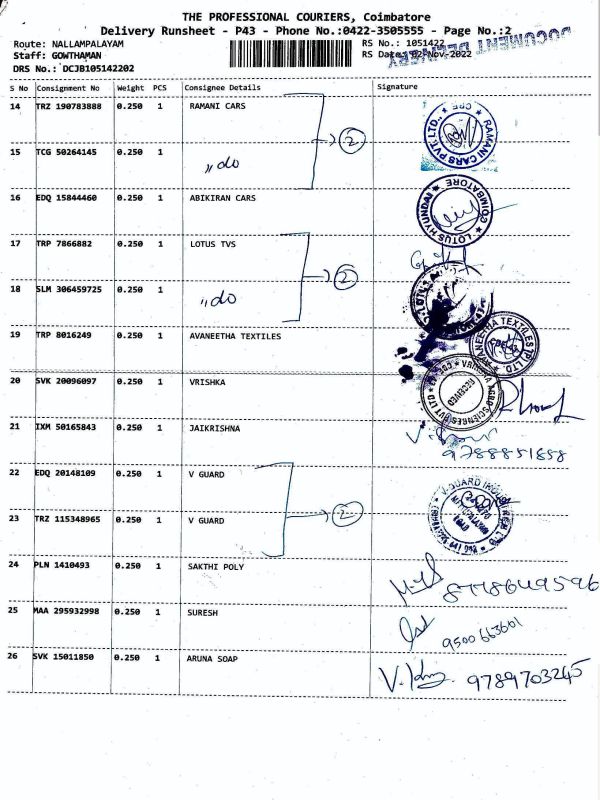 THE PROFESSIONAL COURIERS, Coimbatore
Delivery Runsheet - P43 - Phone No.:0422-3505555 - Page No.:2
Route: NALLAMPALAYAM RS No.: 1051422
Staff: GOWTHAMAN RS Date: 02-Nov-2022
DOCUMENT DELIVERY
DRS No.: DCJB105142202
S No Consignment No Weight PCS Consignee Details Signature
14 TRZ 190783888 0.250 1 RAMANI CARS
2
RAMANI CARS PVT. LTD., CBE
15 TCG 50264145 0.250 1 ,, do
16 EDQ 15844460 0.250 1 ABIKIRAN CARS
LOTUS HYUNDAI COIMBATORE
17 TRP 7866882 0.250 1 LOTUS TVS
2
18 SLM 306459725 0.250 1 ,, do
19 TRP 8016249 0.250 1 AVANEETHA TEXTILES
AVANEETHA TEXTILES (P) LTD.
20 SVK 20096097 0.250 1 VRISHKA
AGRO SCIENCES PVT LTD
RECEIVED
21 IXM 50165843 0.250 1 JAIKRISHNA
9788851858
22 EDQ 20148109 0.250 1 V GUARD
2
V-GUARD
23 TRZ 115348965 0.250 1 V GUARD
24 PLN 1410493 0.250 1 SAKTHI POLY
25 MAA 295932998 0.250 1 SURESH
9500663601
26 SVK 15011850 0.250 1 ARUNA SOAP
9789703245